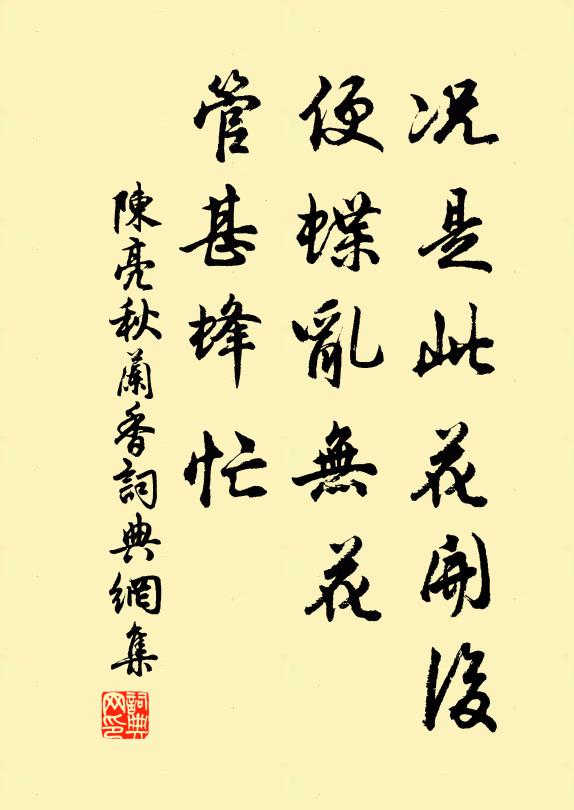 况是此花開後
便蝶亂無花
管甚蜂忙
陳亮秋蘭香詞典網集
詞典
网印